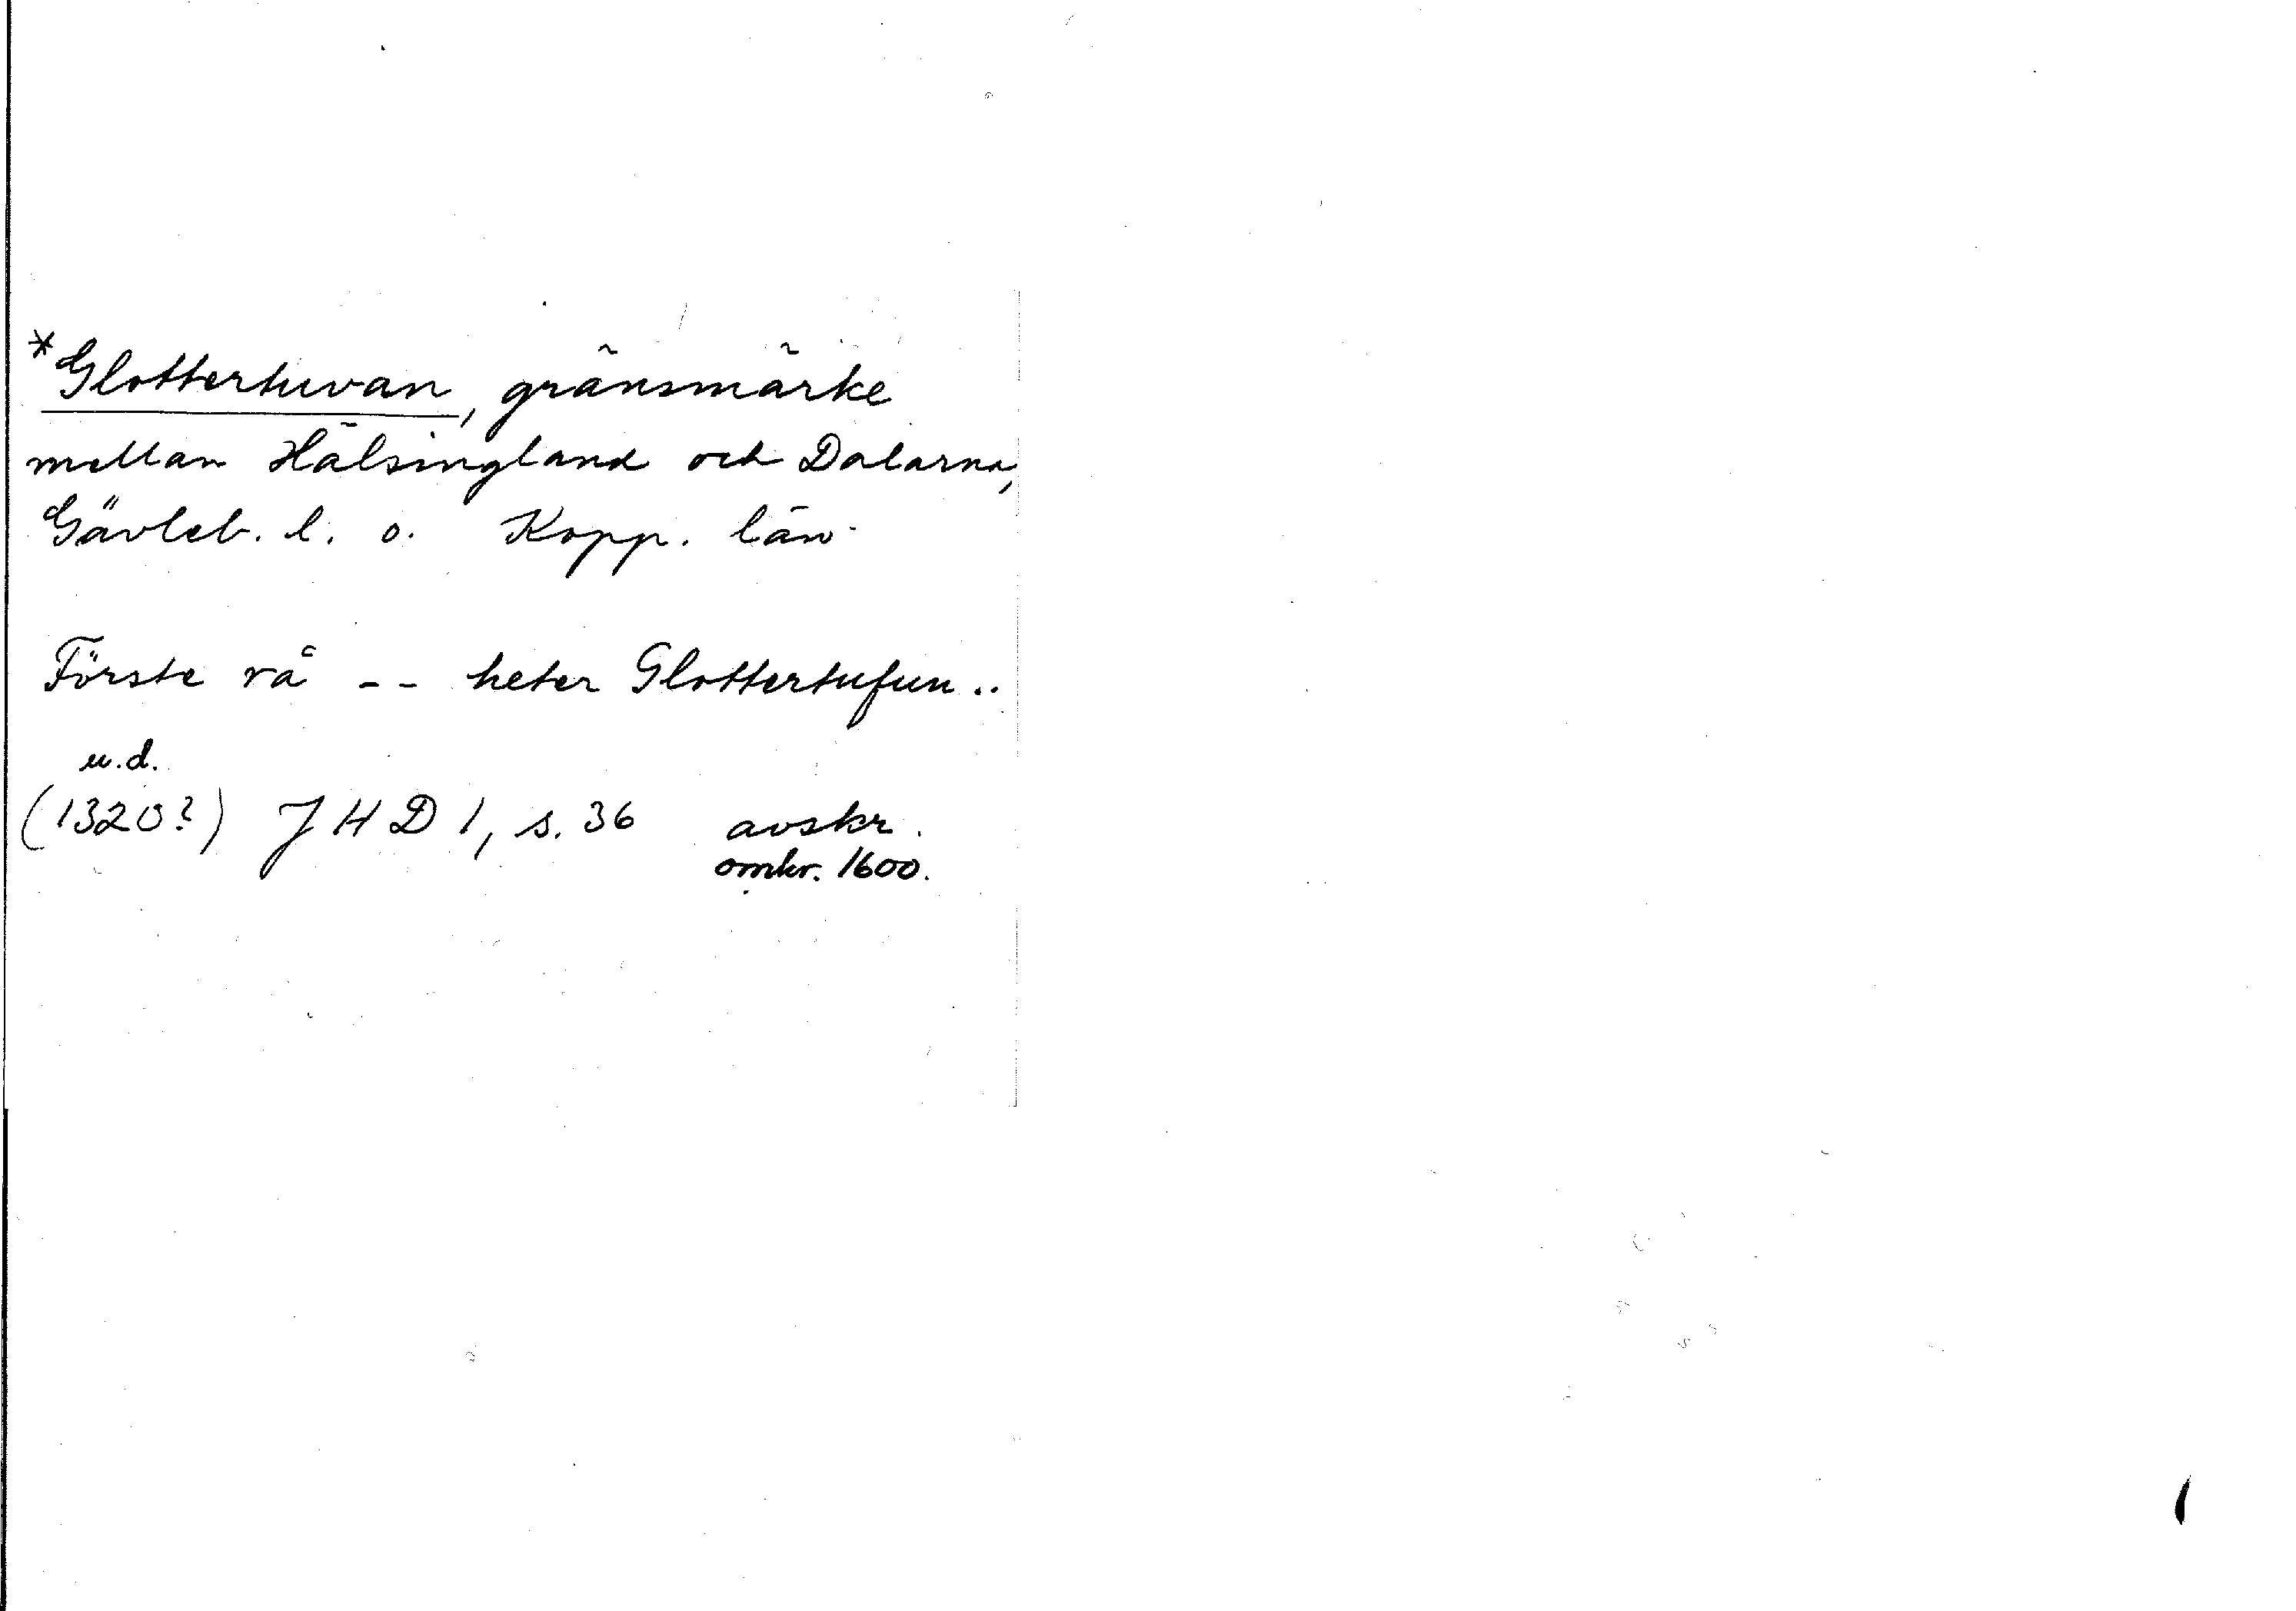 *Glottertuvan, gränsmärke
mellan Hälsingland och Dalarna,
Gävleb. l. o. Kopp. län
Förste rå -- heter Glottertufun ..
u.d.
(1320?) JHD 1, s. 36 avskr.
omkr. 1600.